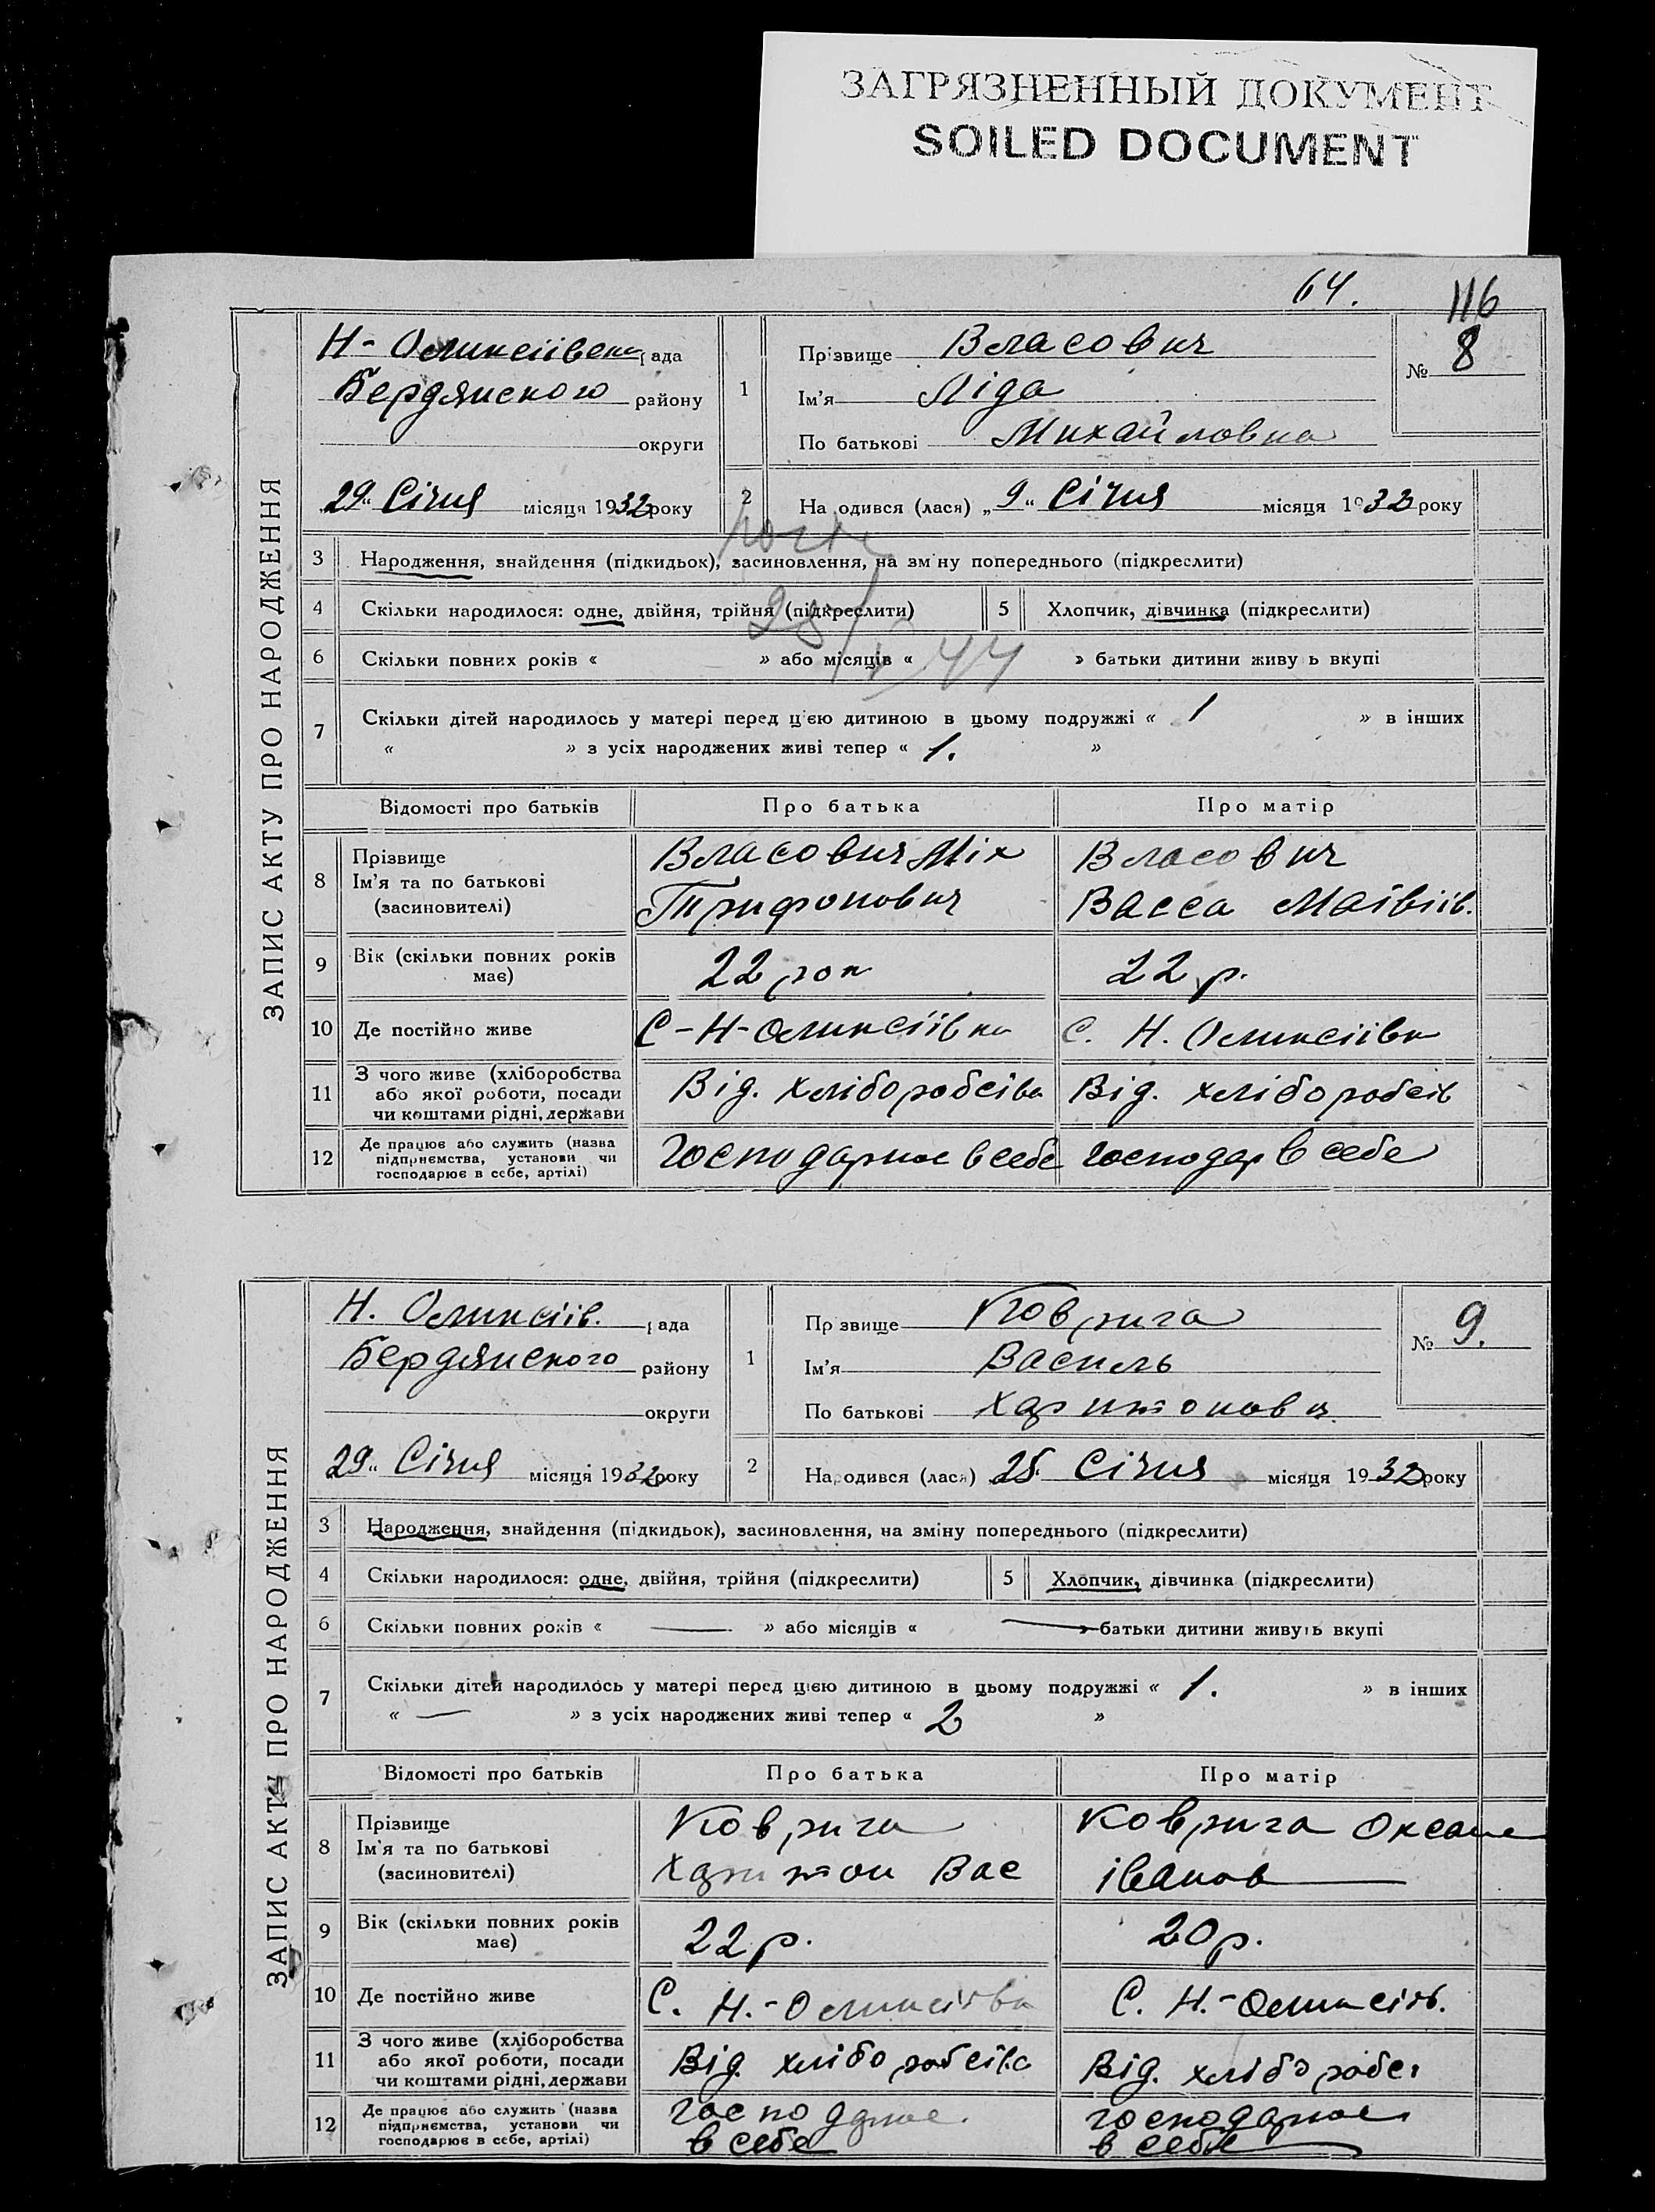 ЗАГРЯЗНЕННЫЙ ДОКУМЕНТ
SOILED DOCUMENT
64.
116
ЗАПИС АКТУ ПРО НАРОДЖЕННЯ
Н- Оликсіівська рада
Бердянского району
округи
29 „ Січня місяця 1932 року
1
Прізвище Власович
Ім'я Ліда
По батькові Михайловна
№ 8
2
Народився (лася) „ 9 “ Січня місяця 1932 року
3 Народження, знайдення (підкидьок), засиновлення, на зміну попереднього (підкреслити)
4 Скільки народилося: одне, двійня, трійня (підкреслити)
5 Хлопчик, дівчинка (підкреслити)
6 Скільки повних років « » або місяців « » батьки дитини живуть вкупі
7 Скільки дітей народилось у матері перед цією дитиною в цьому подружжі « 1 » в інших
« » з усіх народжених живі тепер « 1. »
Відомості про батьків Про батька Про матір
8 Прізвище
Ім'я та по батькові
(засиновителі)
Власович Міх
Трифонович
Власович
Васса Матвіів.
9 Вік (скільки повних років
має)
22 рок
22 р.
10 Де постійно живе
С-Н-Оликсіівка
С. Н. Оликсіівк
11 З чого живе (хліборобства
або якої роботи, посади
чи коштами рідні, держави
Від. хліборобства
Від. хліборобств
12 Де працює або служить (назва
підприємства, установи чи
господарює в себе, артілі)
Господарює в себе
господар в себе
ЗАПИС АКТУ ПРО НАРОДЖЕННЯ
Н. Оликсіів. рада
Бердянского району
округи
29 „ Січня місяця 1932 року
1
Прізвище Коврига
Ім'я Василь
По батькові Харитонов
№ 9.
2
Народився (лася) 25. Січня місяця 1932 року
3 Народження, знайдення (підкидьок), засиновлення, на зміну попереднього (підкреслити)
4 Скільки народилося: одне, двійня, трійня (підкреслити)
5 Хлопчик, дівчинка (підкреслити)
6 Скільки повних років « — » або місяців « — » батьки дитини живуть вкупі
7 Скільки дітей народилось у матері перед цією дитиною в цьому подружжі « 1. » в інших
« — » з усіх народжених живі тепер « 2 »
Відомості про батьків Про батька Про матір
8 Прізвище
Ім'я та по батькові
(засиновителі)
Коврига
Харитон Вас
Коврига Оксана
Іванов
9 Вік (скільки повних років
має)
22 р.
20 р.
10 Де постійно живе
С. Н.-Оликсіівка
С. Н.-Оликсіів.
11 З чого живе (хліборобства
або якої роботи, посади
чи коштами рідні, держави
Від. хліборобства
Від. хліборобс
12 Де працює або служить (назва
підприємства, установи чи
господарює в себе, артілі)
господарює.
в себе
господарює
в себе